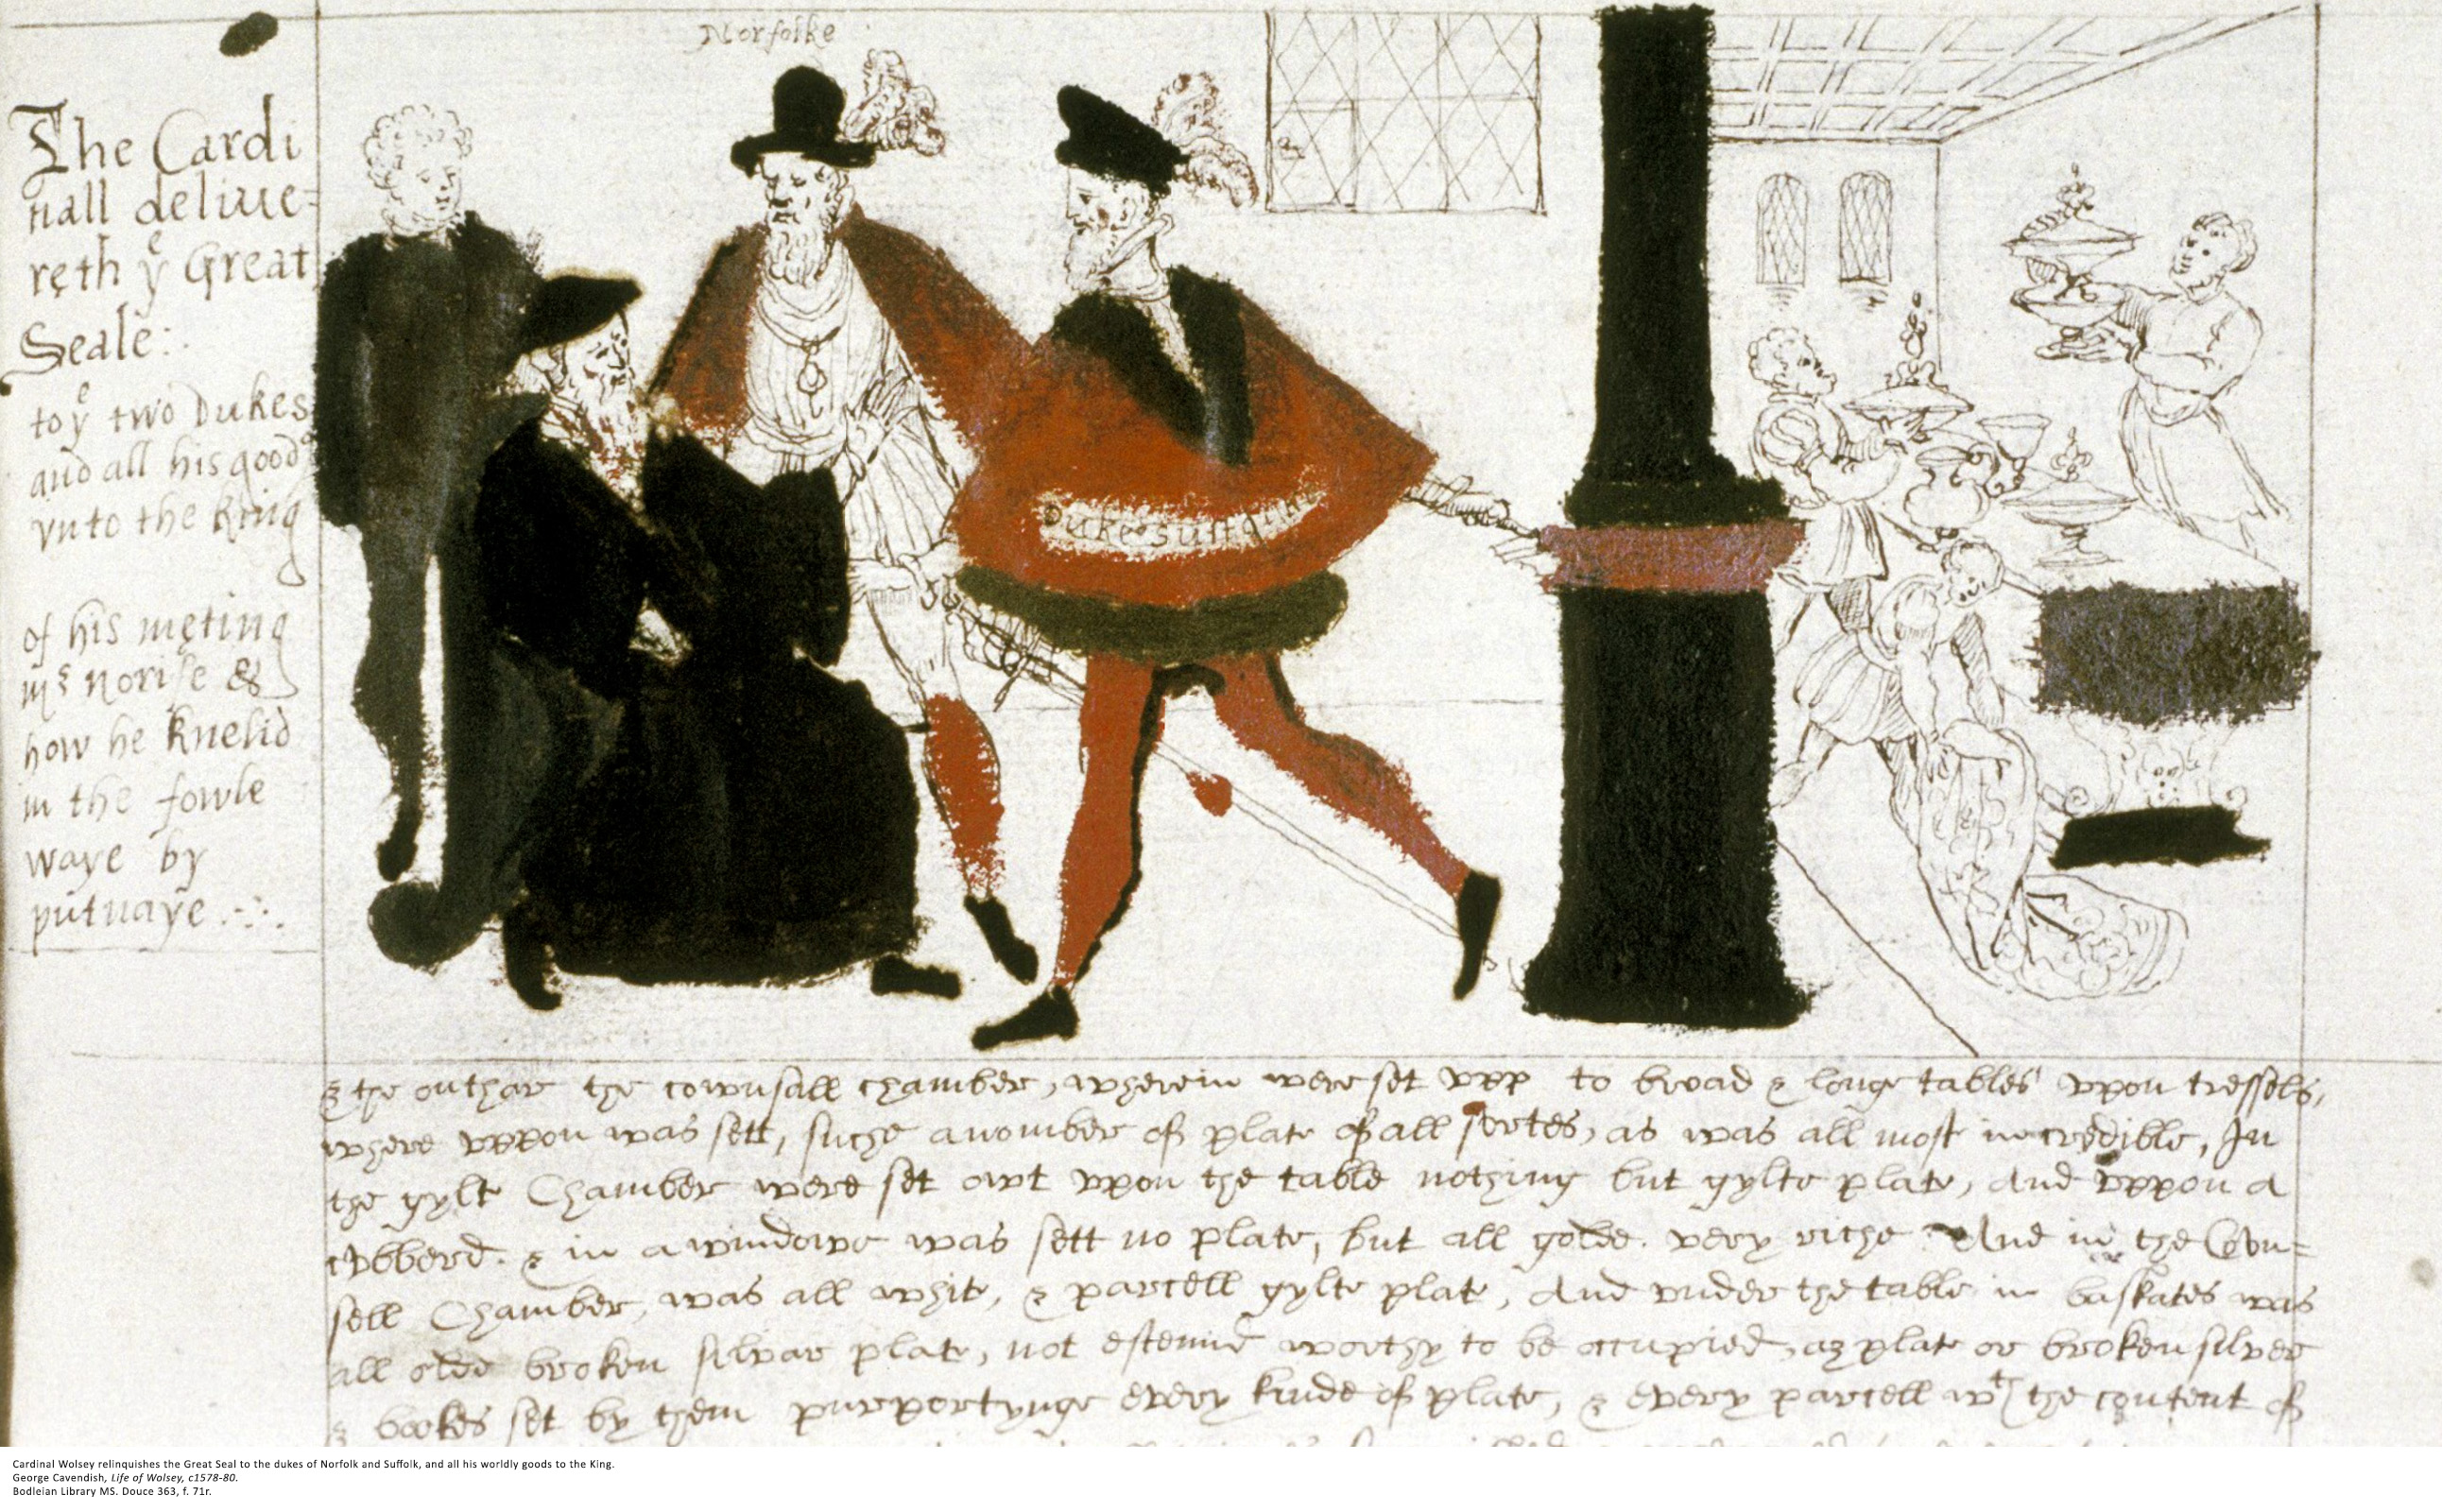 Norfolke
The Cardi
nall deliue=
reth yᵉ Great
Seale:
to yᵉ two Dukes
and all his goodˢ
vnto the king
of his meting
mʳ norise &
how he knelid
in the fowle
waye by
putnaye
Duke Suff
& the outhar the cownsall chamber, wherein were set vpp to broad & longe tables vpon tressels,
where vppon was sett, suche a nomber of plate of all sortes, as was all most incredible, In
the gylt Chamber were set owt vpon the table nothing but gylte plate, And vppon a
cvbberd & in a windowe was sett no plate, but all golde very riche And in the Cown=
sell Chamber, was all whit, & parcell gylte plate, And vnder the table in baskates was
all olde broken silvar plate, not estemid worthy to be occupied, as plate or broken silver
& bookes set by them purportynge every kinde of plate, & every parcell wᵗʰ the content of
Cardinal Wolsey relinquishes the Great Seal to the dukes of Norfolk and Suffolk, and all his worldly goods to the King.
George Cavendish, Life of Wolsey, c1578-80.
Bodleian Library MS. Douce 363, f. 71r.